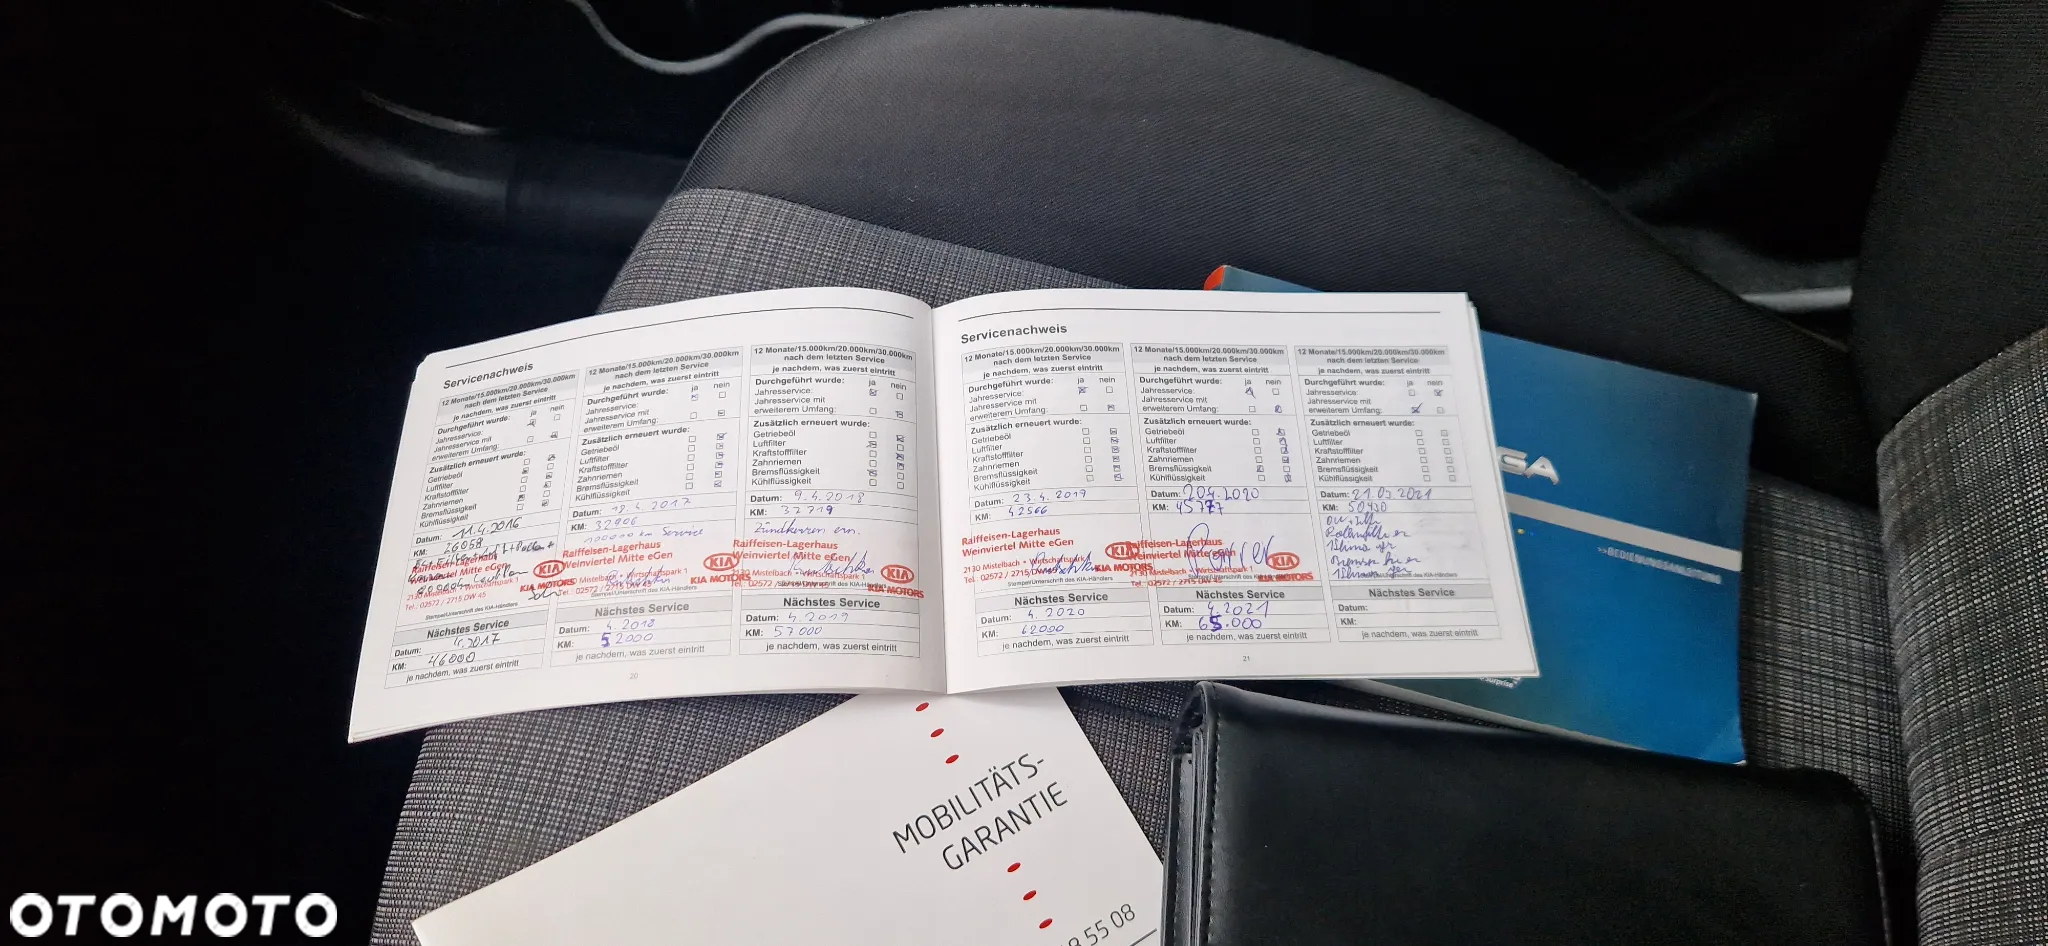 Servicenachweis
12 Monate/15.000km/20.000km/30.000km
nach dem letzten Service
je nachdem, was zuerst eintritt
Durchgeführt wurde: ja nein
Jahresservice:
Jahresservice mit
erweitertem Umfang:
Zusätzlich erneuert wurde:
Getriebeöl
Luftfilter
Kraftstofffilter
Zahnriemen
Bremsflüssigkeit
Kühlflüssigkeit
Datum: 11.4.2016
KM: 26058
Raiffeisen-Lagerhaus
Weinviertel Mitte eGen
2130 Mistelbach • Wirtschaftspark 1
Tel.: 02572 / 2715 DW 45
KIA
KIA MOTORS
Stempel/Unterschrift des KIA-Händlers
Nächstes Service
Datum: 4.2017
KM: 46000
je nachdem, was zuerst eintritt
12 Monate/15.000km/20.000km/30.000km
nach dem letzten Service
je nachdem, was zuerst eintritt
Durchgeführt wurde: ja nein
Jahresservice:
Jahresservice mit
erweitertem Umfang:
Zusätzlich erneuert wurde:
Getriebeöl
Luftfilter
Kraftstofffilter
Zahnriemen
Bremsflüssigkeit
Kühlflüssigkeit
Datum: 18.4.2017
KM: 32006
100000 km Service
Raiffeisen-Lagerhaus
Weinviertel Mitte eGen
2130 Mistelbach • Wirtschaftspark 1
Tel.: 02572 / 2715 DW 45
KIA
KIA MOTORS
Stempel/Unterschrift des KIA-Händlers
Nächstes Service
Datum: 4.2018
KM: 52000
je nachdem, was zuerst eintritt
12 Monate/15.000km/20.000km/30.000km
nach dem letzten Service
je nachdem, was zuerst eintritt
Durchgeführt wurde: ja nein
Jahresservice:
Jahresservice mit
erweitertem Umfang:
Zusätzlich erneuert wurde:
Getriebeöl
Luftfilter
Kraftstofffilter
Zahnriemen
Bremsflüssigkeit
Kühlflüssigkeit
Datum: 9.4.2018
KM: 37719
Zündkerzen ern.
Raiffeisen-Lagerhaus
Weinviertel Mitte eGen
2130 Mistelbach • Wirtschaftspark 1
Tel.: 02572 / 2715 DW 45
KIA
KIA MOTORS
Stempel/Unterschrift des KIA-Händlers
Nächstes Service
Datum: 4.2019
KM: 57000
je nachdem, was zuerst eintritt
20
Servicenachweis
12 Monate/15.000km/20.000km/30.000km
nach dem letzten Service
je nachdem, was zuerst eintritt
Durchgeführt wurde: ja nein
Jahresservice:
Jahresservice mit
erweitertem Umfang:
Zusätzlich erneuert wurde:
Getriebeöl
Luftfilter
Kraftstofffilter
Zahnriemen
Bremsflüssigkeit
Kühlflüssigkeit
Datum: 23.4.2019
KM: 42566
Raiffeisen-Lagerhaus
Weinviertel Mitte eGen
2130 Mistelbach • Wirtschaftspark 1
Tel.: 02572 / 2715 DW 45
KIA
KIA MOTORS
Stempel/Unterschrift des KIA-Händlers
Nächstes Service
Datum: 4.2020
KM: 62000
je nachdem, was zuerst eintritt
12 Monate/15.000km/20.000km/30.000km
nach dem letzten Service
je nachdem, was zuerst eintritt
Durchgeführt wurde: ja nein
Jahresservice:
Jahresservice mit
erweitertem Umfang:
Zusätzlich erneuert wurde:
Getriebeöl
Luftfilter
Kraftstofffilter
Zahnriemen
Bremsflüssigkeit
Kühlflüssigkeit
Datum: 204.2020
KM: 45777
Raiffeisen-Lagerhaus
Weinviertel Mitte eGen
2130 Mistelbach • Wirtschaftspark 1
Tel.: 02572 / 2715 DW 45
KIA
KIA MOTORS
Stempel/Unterschrift des KIA-Händlers
Nächstes Service
Datum: 4.2021
KM: 65.000
je nachdem, was zuerst eintritt
12 Monate/15.000km/20.000km/30.000km
nach dem letzten Service
je nachdem, was zuerst eintritt
Durchgeführt wurde: ja nein
Jahresservice:
Jahresservice mit
erweitertem Umfang:
Zusätzlich erneuert wurde:
Getriebeöl
Luftfilter
Kraftstofffilter
Zahnriemen
Bremsflüssigkeit
Kühlflüssigkeit
Datum: 21.09.2021
KM: 50490
Stempel/Unterschrift des KIA-Händlers
Nächstes Service
Datum:
KM:
je nachdem, was zuerst eintritt
21
GA
>>BEDIENUNGSANLEITUNG
Surprise
MOBILITÄTS-
GARANTIE
8 55 08
OTOMOTO